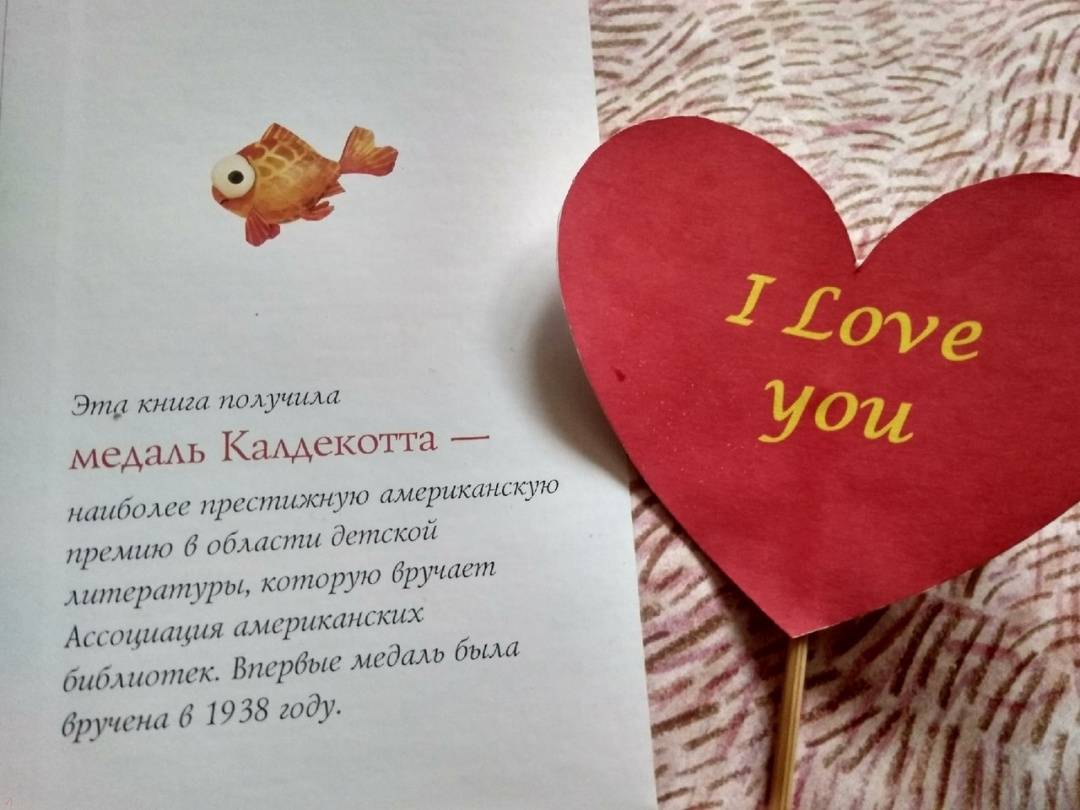 Эта книга получила
медаль Калдекотта —
наиболее престижную американскую
премию в области детской
литературы, которую вручает
Ассоциация американских
библиотек. Впервые медаль была
вручена в 1938 году.
I Love
you